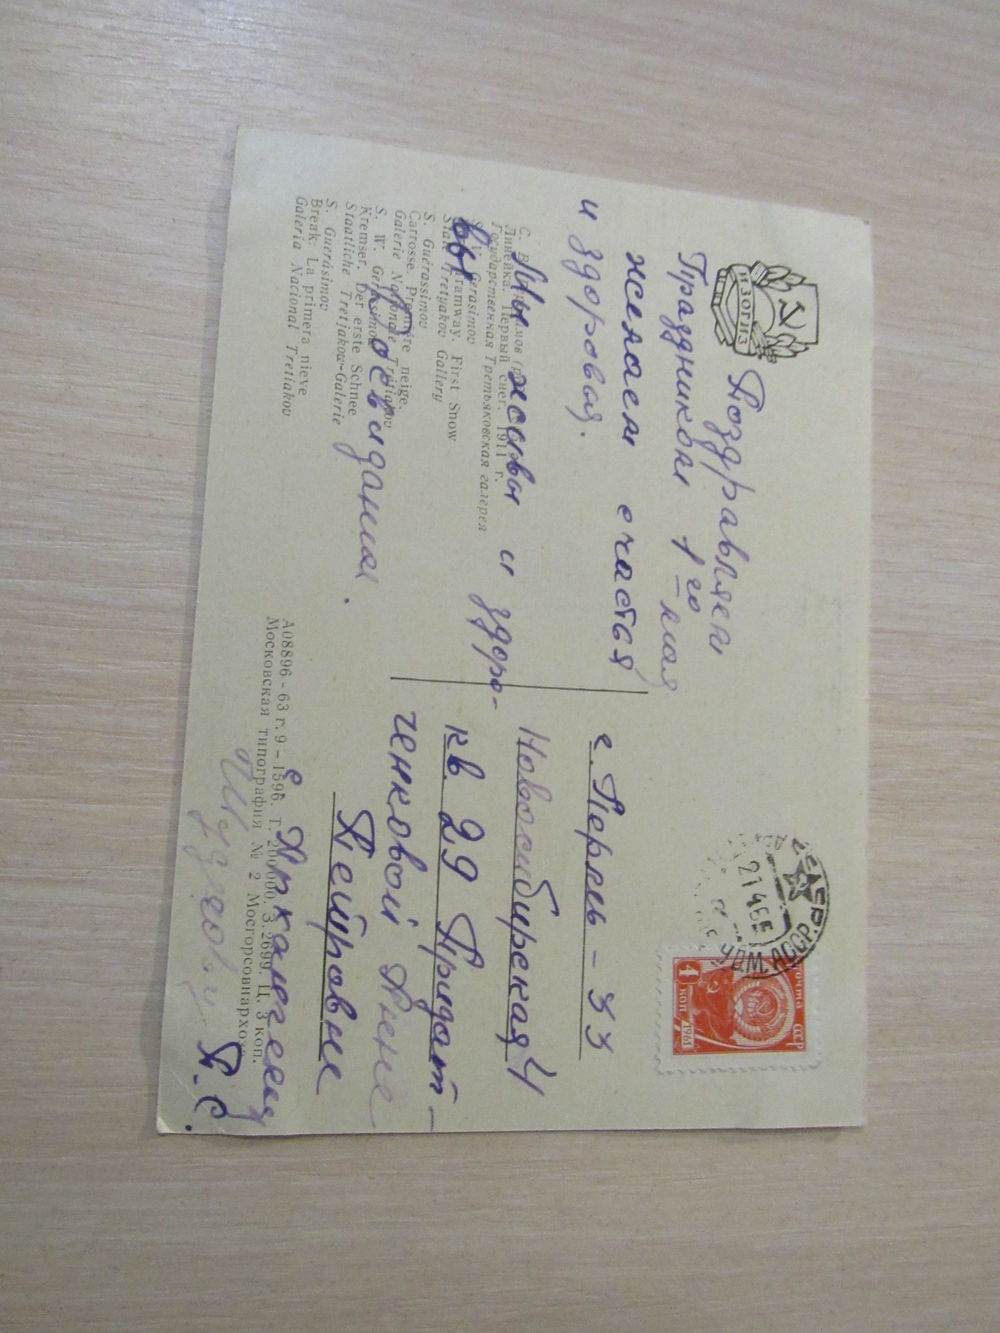 ИЗОГИЗ
Поздравляем
Праздником 1го мая
желаем счастья
и здоровья.
Мы живы и здоро-
вы
Досвидания.
Государственная Третьяковская галерея
Линейка. Первый снег. 1911 г.
S. V. Gerasimov
Tramway. First Snow
State Tretyakov Gallery
S. Guérassimov
Carrosse. Première neige.
Galerie Nationale Tretiakov
S. W. Gerassimow
Kremser. Der erste Schnee
Staatliche Tretjakow-Galerie
S. Guerásimov
Break. La primera nieve
Galeria Nacional Tretiakov
почта СССР
4 коп
1961
УДМ. АССР
г. Пермь-33
Новосибирская 4
кв. 29 Придат-
ченковой Анне
Пейровне
с Архангельск
П. С.
А08896-63 г. 9-1596. Т. 200000. З. 2699. Ц. 3 коп.
Московская типография № 2 Мосгорсовнархоза